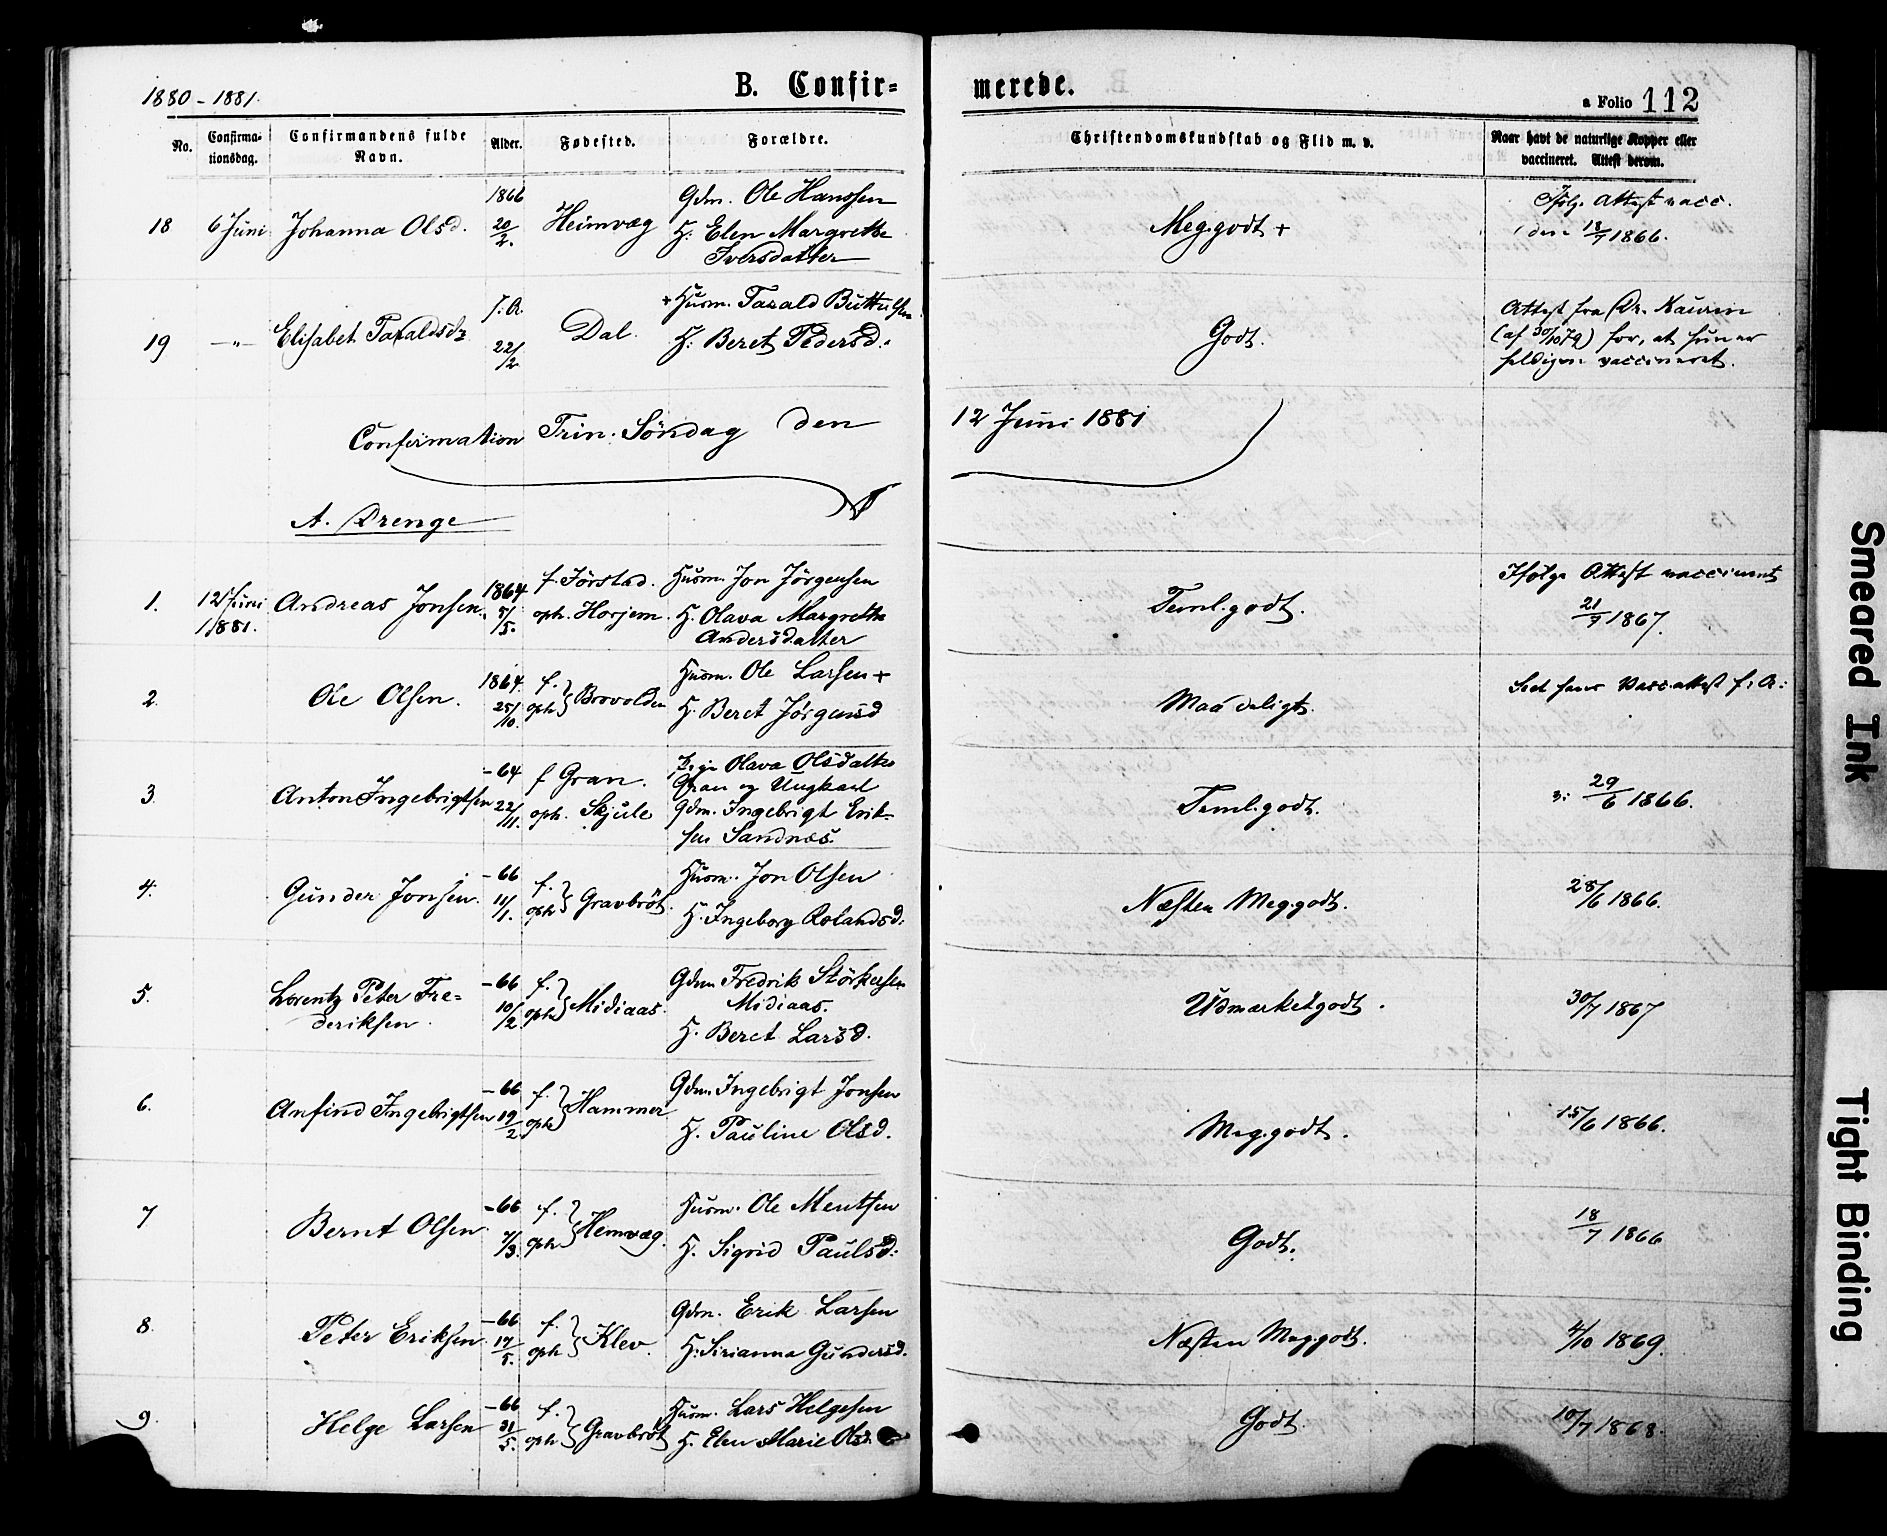 1880 - 1881.
B. Confir=
merede.
a Folio 112
No.
Confirma-
tionsdag.
Confirmandens fulde
Navn.
Alder.
Fødested.
Forældre.
Christendomskundskab og Flid m. v.
Naar havt de naturlige Kopper eller
vaccineret. Attest derom.
18 6 Juni Johanna Olsd. 1866 20/2. Heimvæg
Gdm. Ole Hanssen
H. Elen Margrethe
Iversdatter
Meg.godt +
Ifølge Attest vacc.
den 18/7 1866.
19 —„— Elisabet Taraldsdr f. A. 22/2 Dal.
+ Husm. Tarald
H. Beret Pedersd.
Godt.
Attest fra Dr. Kaurin
(af 30/10 79) for, at hun er
heldigen vaccineret.
Confirmation Trin. Söndag den 12 Juni 1881
A. Drenge
1. 12 Juni
1881.
Andreas Jonsen. 1864 5/5.
f. Förstad.
oph. Horjem.
Husm. Jon Jörgensen
H. Olava Margrethe
Andersdatter
Teml. godt.
Ifølge Attest vaccineret
21/7 1867.
2. Ole Olsen. 1864. 25/10.
f.
oph. } Brovolden
Husm. Ole Larsen +
H. Beret Jörgensd
Maadeligt.
vacc.attest f. A:
3. Anton Ingebrigtsen - 64 22/11.
f Gran.
oph. Skjule
Pige Olava Olsdatter
Gran og Ungkarl
Gdm. Ingebrigt Erik-
sen Sandnæs.
Teml. godt.
29/6 1866.
4. Gunder Jonsen. - 66 11/1.
f.
oph } Gravbröt.
Husm. Jon Olsen
H. Ingeborg Rolandsd:
Næsten Meg.godt.
28/6 1866.
5. Lorentz Peter Fre=
deriksen.
- 66 10/2.
f.
oph } Midiaas.
Gdm Fredrik Störkersen
Midiaas.
H. Beret Larsd.
Udmærket godt.
30/7 1867
6. Anfind Ingebrigtsen - 66 19/2
f.
oph } Hammer
Gdm. Ingebrigt Jonsen
H. Pauline Olsd.
Meg.godt.
15/6 1866.
7 Bernt Olsen. - 66 7/3.
f.
oph } Hemvæg.
Husm. Ole Mentsen
H. Sigrid Paulsd:
Godt.
18/7 1866
8. Peter Eriksen. - 66 17/5.
f.
oph } Klev.
Gdm. Erik Larsen
H. Sirianna Gundersd.
Næsten Meg.godt.
4/10 1869.
9. Helge Larsen - 66 31/5.
f.
oph } Gravbröt
Husm. Lars Helgesen
H. Elen Marie Olsd.
Godt.
10/7 1868.
Smeared Ink
Tight Binding